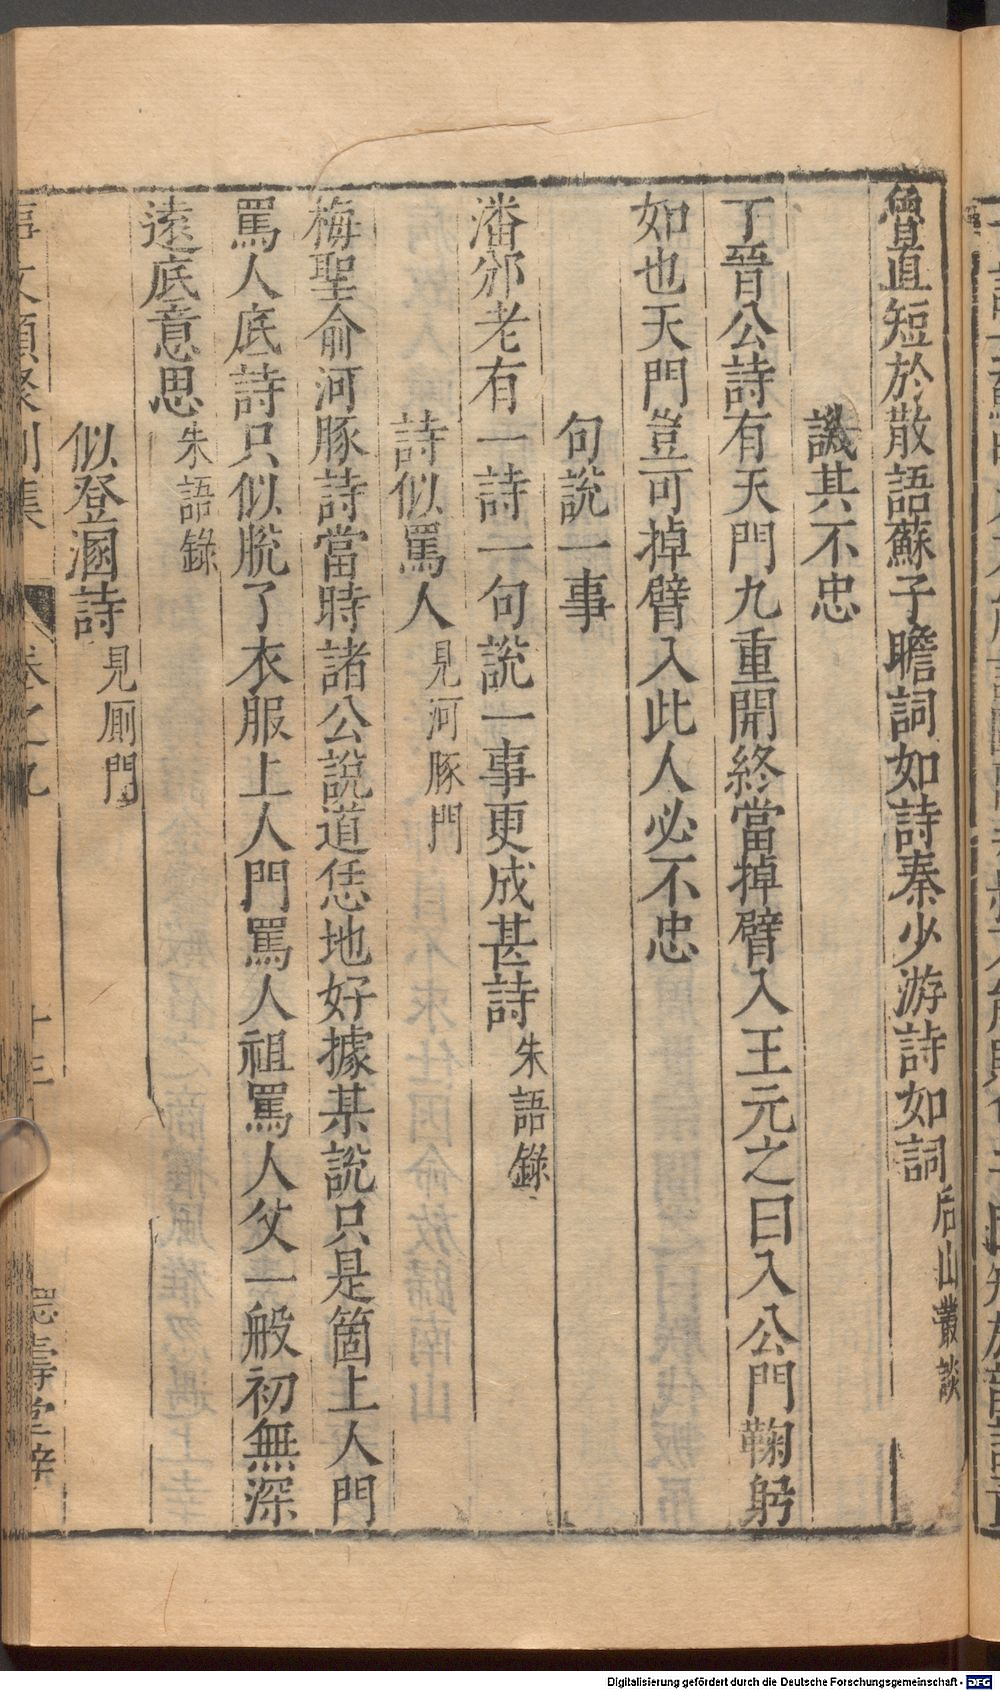 魯直短於散語蘇子瞻詞如詩秦少游詩如詞后山叢談
譏其不忠
丁晉公詩有天門九重開終當掉臂入王元之曰入公門鞠躬
如也天門豈可掉臂入此人必不忠
句說一事
潘邠老有一詩一句說一事更成甚詩朱語錄
詩似罵人見河豚門
梅聖俞河豚詩當時諸公說道恁地好據某說只是箇上人門
罵人底詩只似脫了衣服上人門罵人祖罵人父一般初無深
遠底意思朱語錄
似登溷詩見厠門
事文類聚別集 卷之九 十三
Digitalisierung gefördert durch die Deutsche Forschungsgemeinschaft - DFG